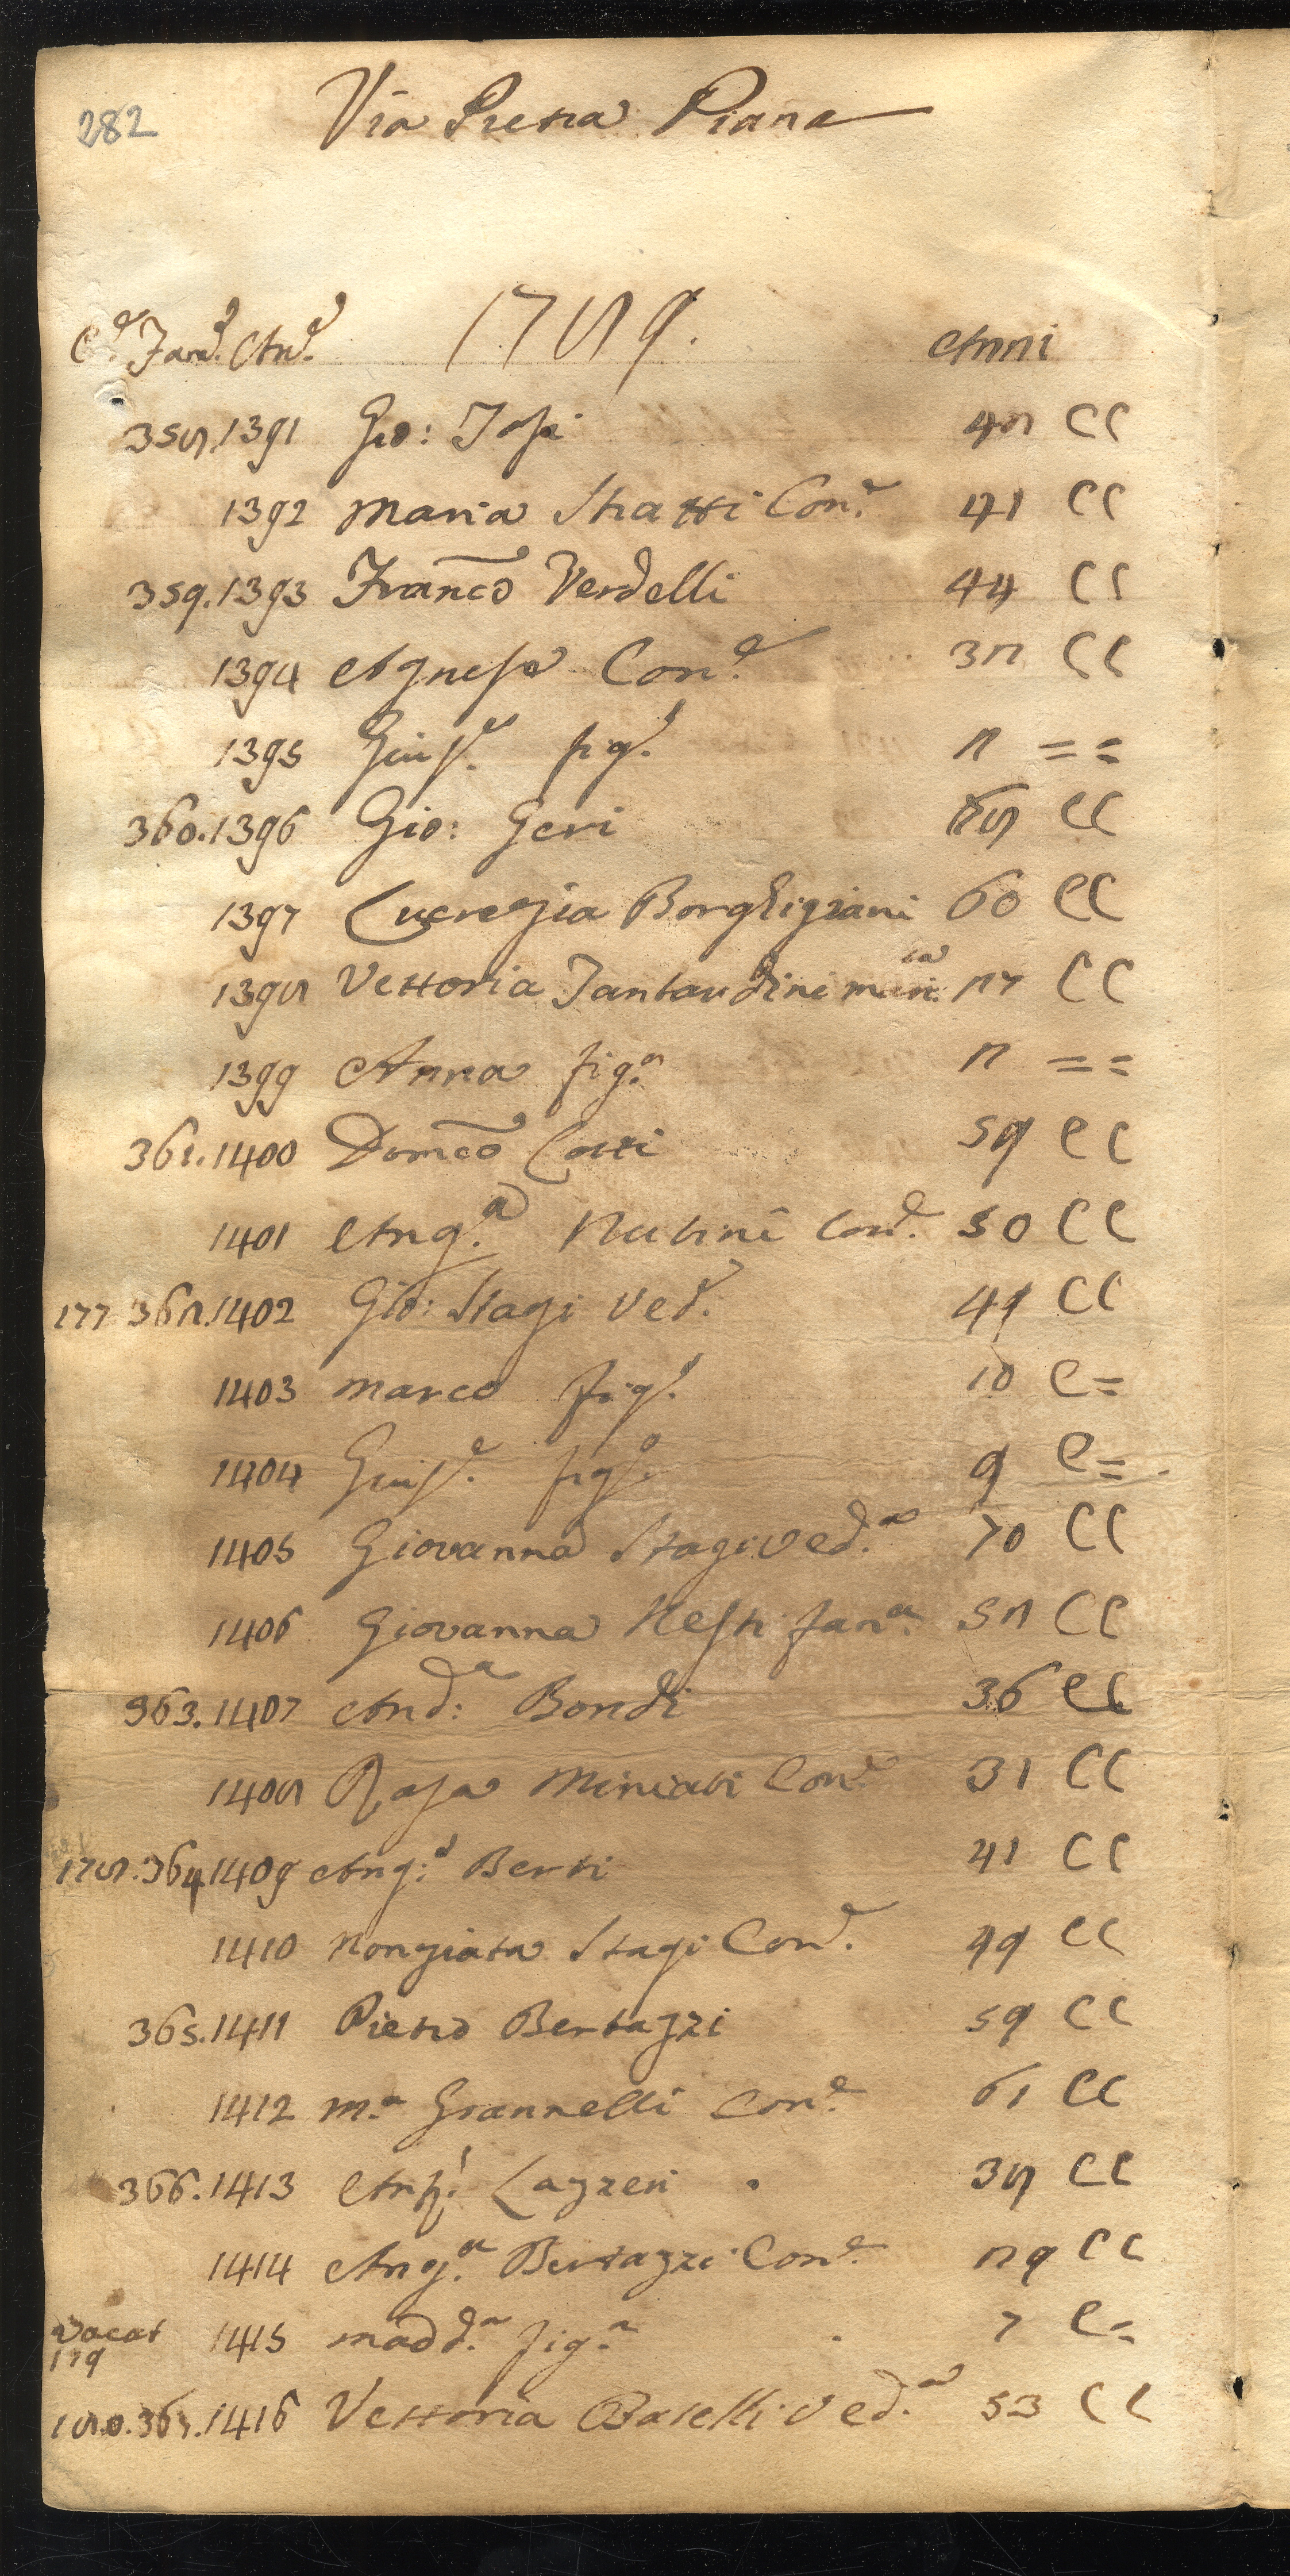 282
Via Pietra Piana
C.e Fam.e An.e 1789. Anni
358.1391 Gio: Tosi 48 CC
1392 Maria Stratti Con.e 41 CC
359.1393 Franco Verdelli 44 CC
1394 Agnesa Con.e 32 CC
1395 Gius.e fig.o 2 = =
360.1396 Gio: Geri 68 CC
1397 Lucrezia Borghigiani 60 CC
1398 Vettoria Tantaudini mar.ta 27 CC
1399 Anna fig.a 2 = =
361.1400 Domco Cotti 59 CC
1401 Ang.a Nutini Con.e 50 CC
177 362.1402 Gio: Stagi Ved.o 49 CC
1403 Marco fig.o 10 C=
1404 Gius.e fig.o 9 C=
1405 Giovanna Stagi Ved.a 70 CC
1406 Giovanna Nesti fan.a 52 CC
363.1407 And:a Bondi 36 CC
1408 Rosa Miniati Con.e 31 CC
178.364.1409 Ang:o Berti 41 CC
1410 Nonziata Stagi Con.e 49 CC
365.1411 Pietro Bertazzi 59 CC
1412 M.a Grannelli Con.e 61 CC
366.1413 Ant.o Lazzeri 38 CC
1414 Ang.a Bertazzi Con.e 29 CC
vacat 179 1415 Madd.a fig.a 7 C=
180.367.1416 Vettoria Batelli Ved.a 53 CC